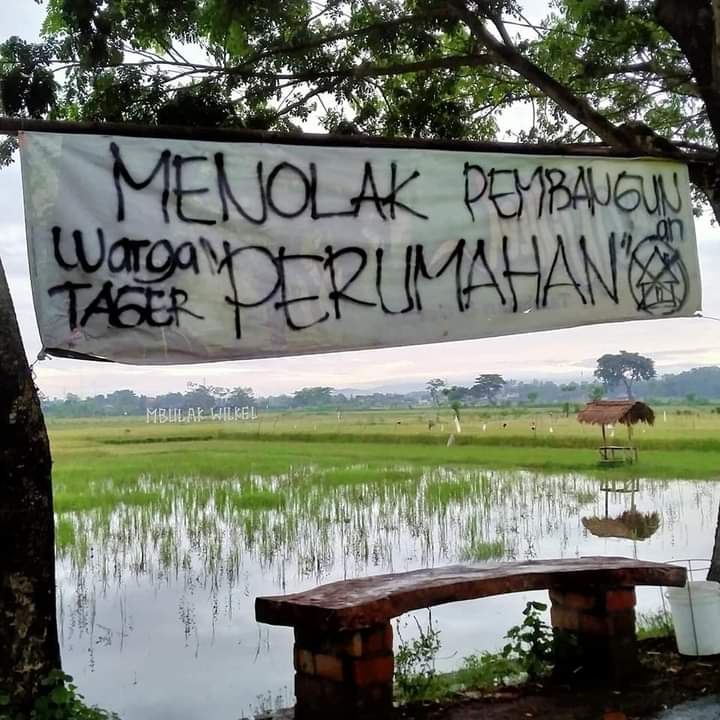 MENOLAK PEMBANGUNan
Warga TAGER "PERUMAHAN"
MBULAK WILKEL